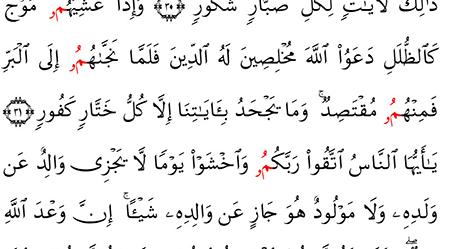 ذَٰلِكَ لَأٓيَٰتٖ لِّكُلِّ صَبَّارٖ شَكُورٖ ۝٣٠ وَإِذَا غَشِيَهُمُۥ مَوۡجٞ
كَٱلظُّلَلِ دَعَوُاْ ٱللَّهَ مُخۡلِصِينَ لَهُ ٱلدِّينَ فَلَمَّا نَجَّىٰهُمُۥ إِلَى ٱلۡبَرِّ
فَمِنۡهُمُۥ مُقۡتَصِدٞۚ وَمَا يَجۡحَدُ بِـَٔايَٰتِنَا إِلَّا كُلُّ خَتَّارٖ كَفُورٖ ۝٣١
يَٰٓأَيُّهَا ٱلنَّاسُ ٱتَّقُواْ رَبَّكُمُۥ وَٱخۡشَوۡاْ يَوۡمٗا لَّا يَجۡزِي وَالِدٌ عَن
وَلَدِهِۦ وَلَا مَوۡلُودٌ هُوَ جَازٍ عَن وَالِدِهِۦ شَيۡـًٔاۚ إِنَّ وَعۡدَ ٱللَّهِ